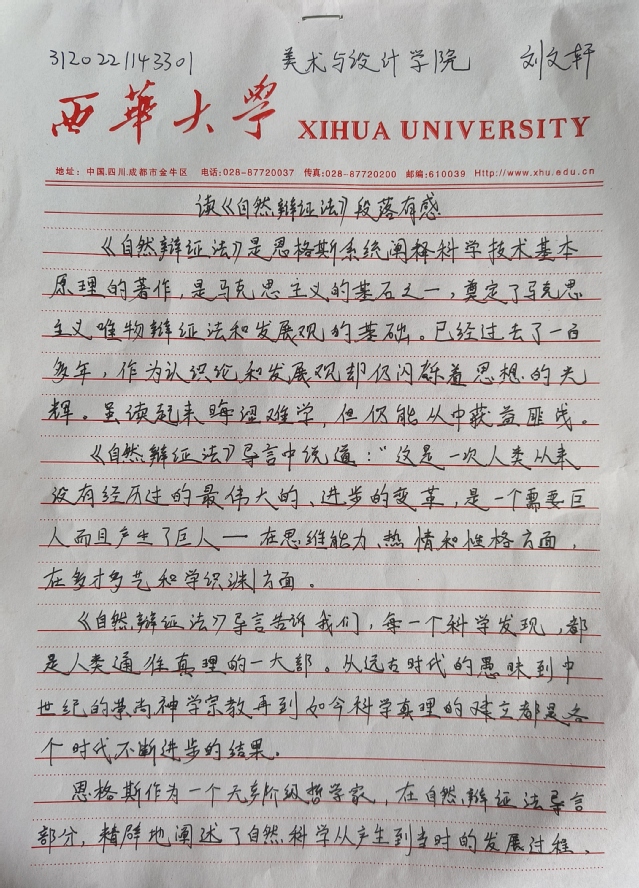 3120221143301 美术与设计学院 刘文轩
西華大学 XIHUA UNIVERSITY
地址：中国.四川.成都市金牛区 电话:028-87720037 传真:028-87720200 邮编:610039 Http://www.xhu.edu.cn
读《自然辩证法》段落有感
《自然辩证法》是恩格斯系统阐释科学技术基本
原理的著作，是马克思主义的基石之一，奠定了马克思
主义唯物辩证法和发展观的基础。已经过去了一百
多年，作为认识论和发展观却仍闪烁着思想的光
辉。虽读起来晦涩难学，但仍能从中获益匪浅。
《自然辩证法》导言中说道：“这是一次人类以来
没有经历过的最伟大的、进步的变革，是一个需要巨
人而且产生了巨人——在思维能力、热情和性格方面，
在多才多艺和学识渊方面。
《自然辩证法》导言告诉我们，每一个科学发现，都
是人类通往真理的一大部。从远古时代的愚昧到中
世纪的崇尚神学宗教再到如今科学真理的建立都是各
个时代不断进步的结果。
恩格斯作为一个无产阶级哲学家，在自然辩证法导言
部分，精辟地阐述了自然科学从产生到当时的发展过程、